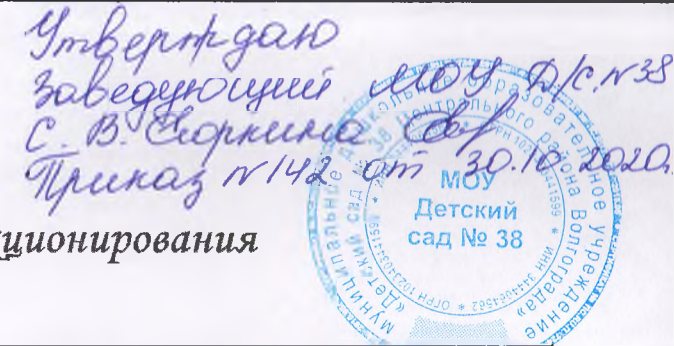 Утверждаю
Заведующий МОУ Д/с. №38
С. В.
Приказ №142 от 30.10.2020г.
ционирования
МОУ
Детский
сад № 38
муниципальное дошкольное образовательное учреждение
«Детский сад № 38 Центрального района Волгограда»